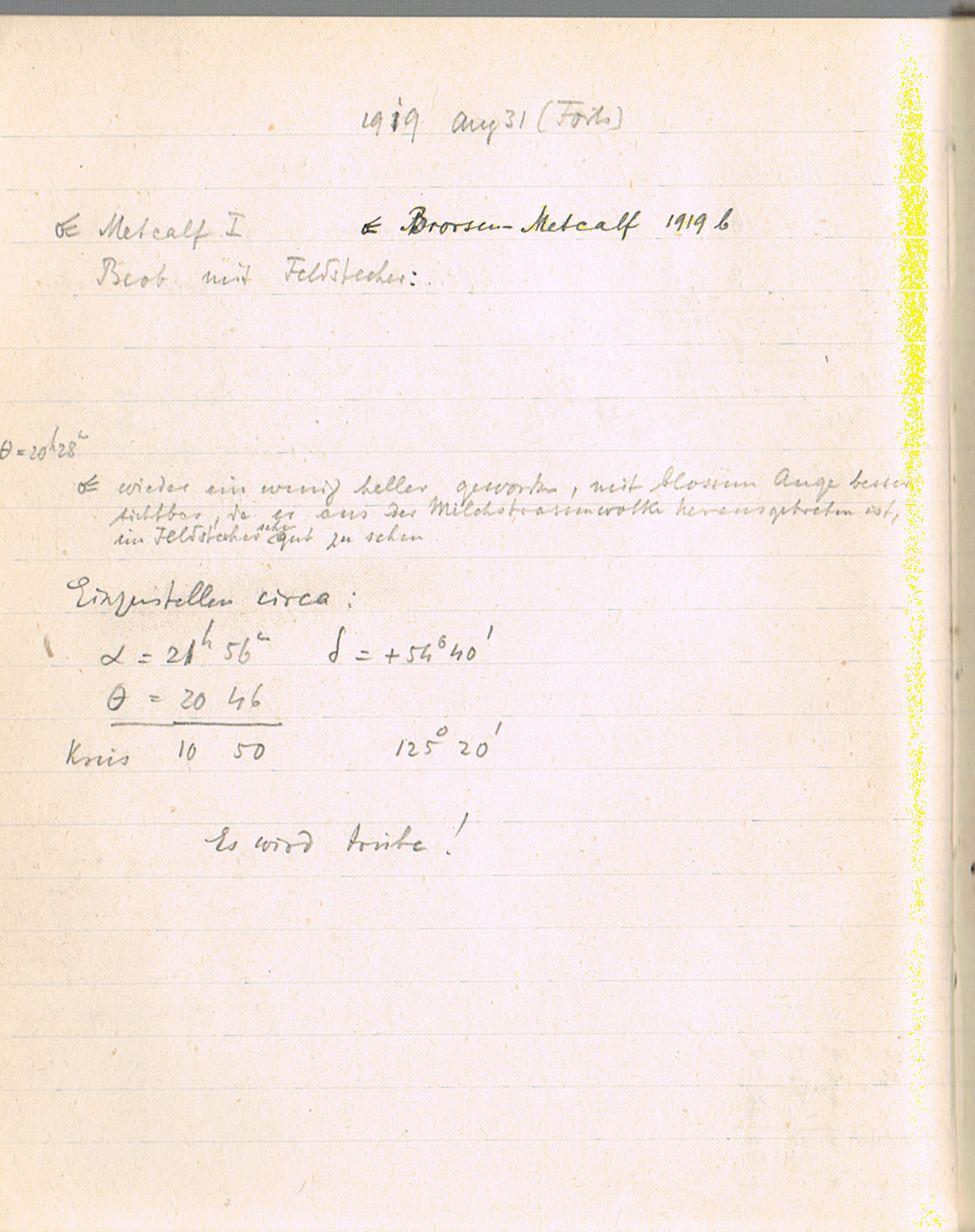 1919 Aug 31 (Forts)
☄ Metcalf I ☄ Brorsen-Metcalf 1919 b
Beob mit Feldstecher:
θ = 20h 28m
☄ wieder ein wenig heller geworden, mit blossem Auge besser
sichtbar, da er aus der Milchstrassenwolke herausgetreten ist,
im Feldstecher sehr gut zu sehen
Einzustellen circa:
α = 21h 56m δ = +54° 40'
θ = 20 46
Kreis 10 50 125° 20'
Es wird trübe!